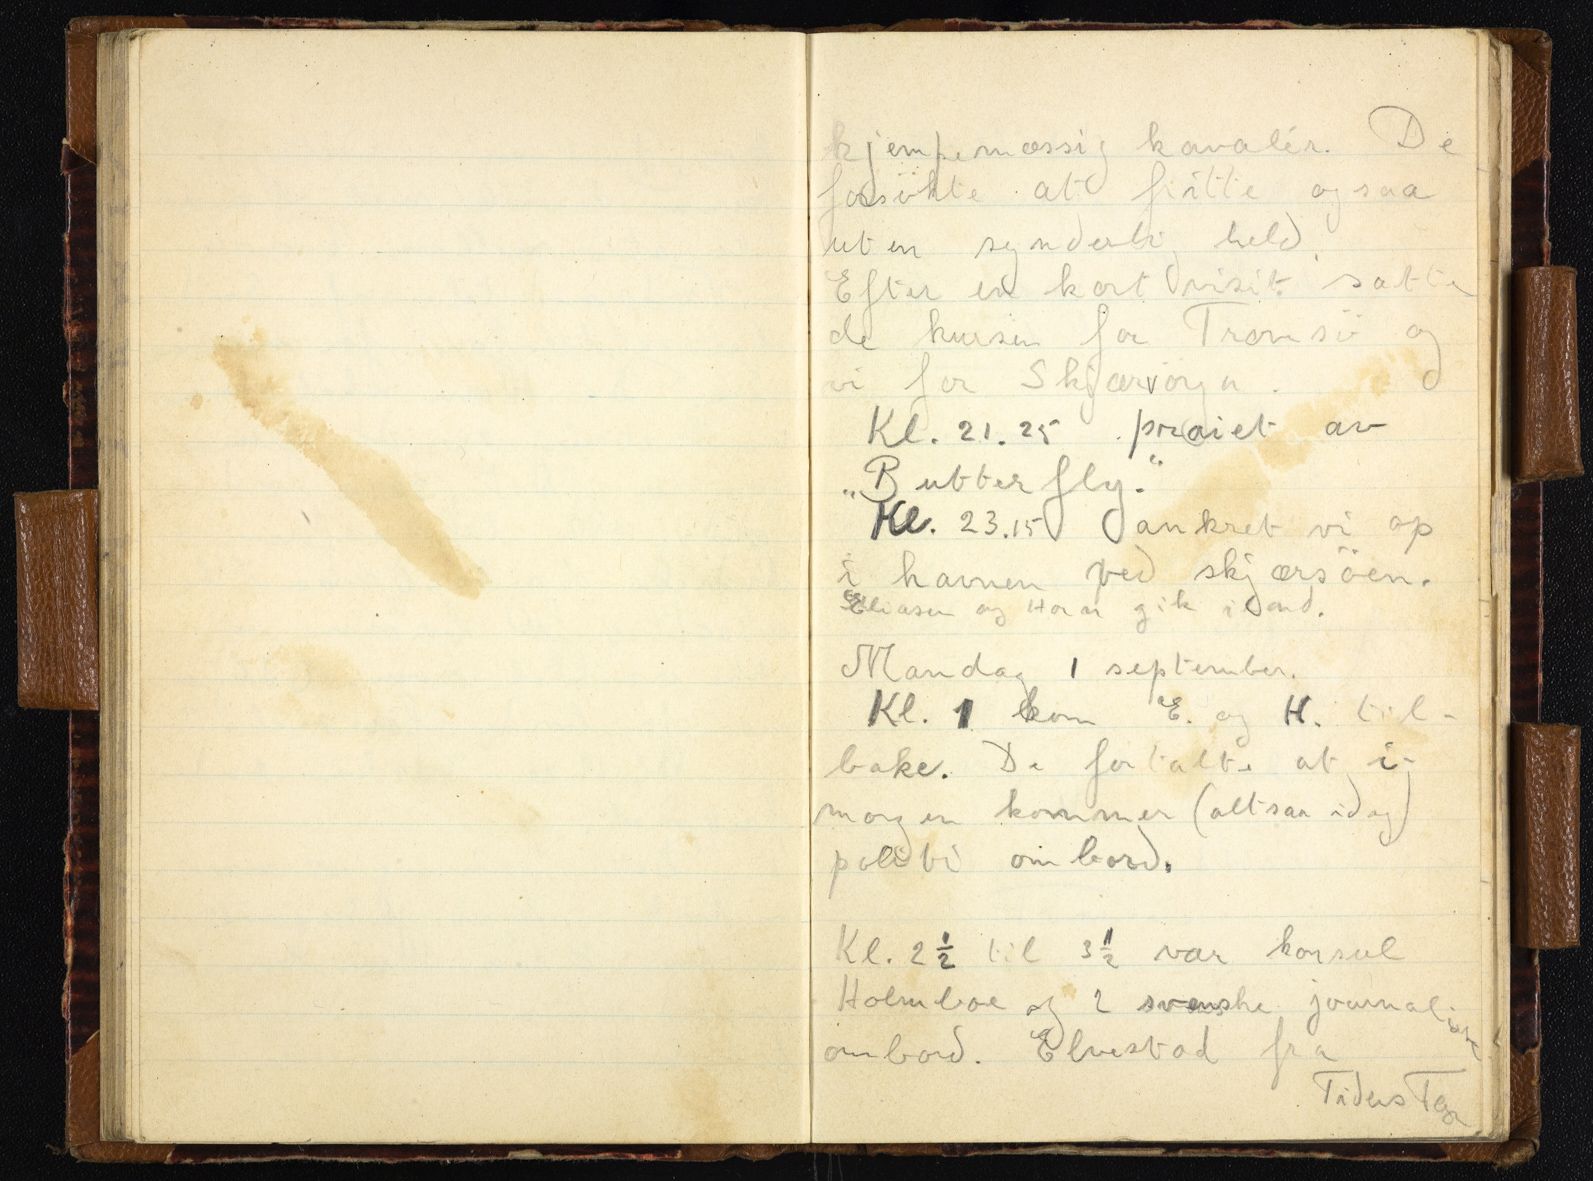 kjempemæssig kavalér. De
forsökte at fritte ogsaa
uten synderlig held.
Efter en kort visit satte
de kursen for Tromsö og
vi for Skjærvöya.
Kl. 21.25 praiet av
„Butterfly."
Kl. 23.15 ankret vi op
i havnen ved skjærsöen.
Eliasen og Horn gik iland.
Mandag 1 september.
Kl. 1 kom E. og H. til-
bake. De fortalte at i
morgen kommer (altsaa idag)
politi ombord.
Kl. 2 1/2 til 3 1/2 var konsul
Holmboe og 2 svenske journalister
ombord. Elvestad fra
Tidens Tegn